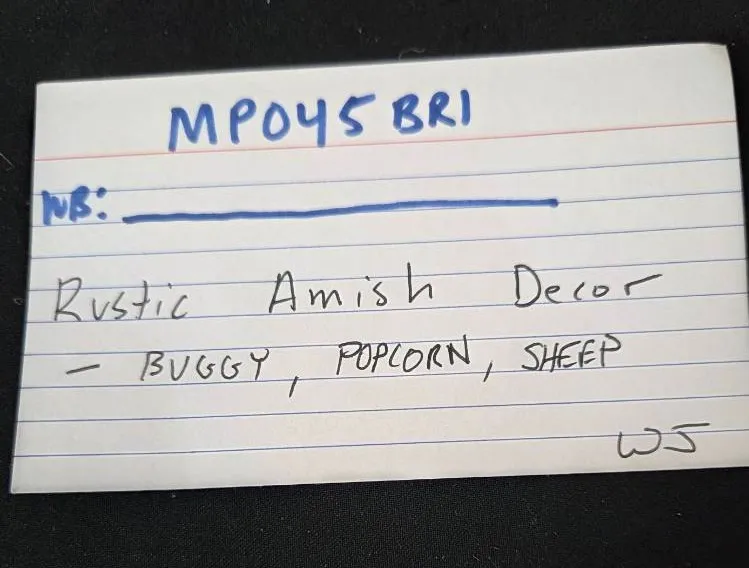 MP045BRI
WB:
Rustic Amish Decor
- BUGGY, POPCORN, SHEEP
WJ